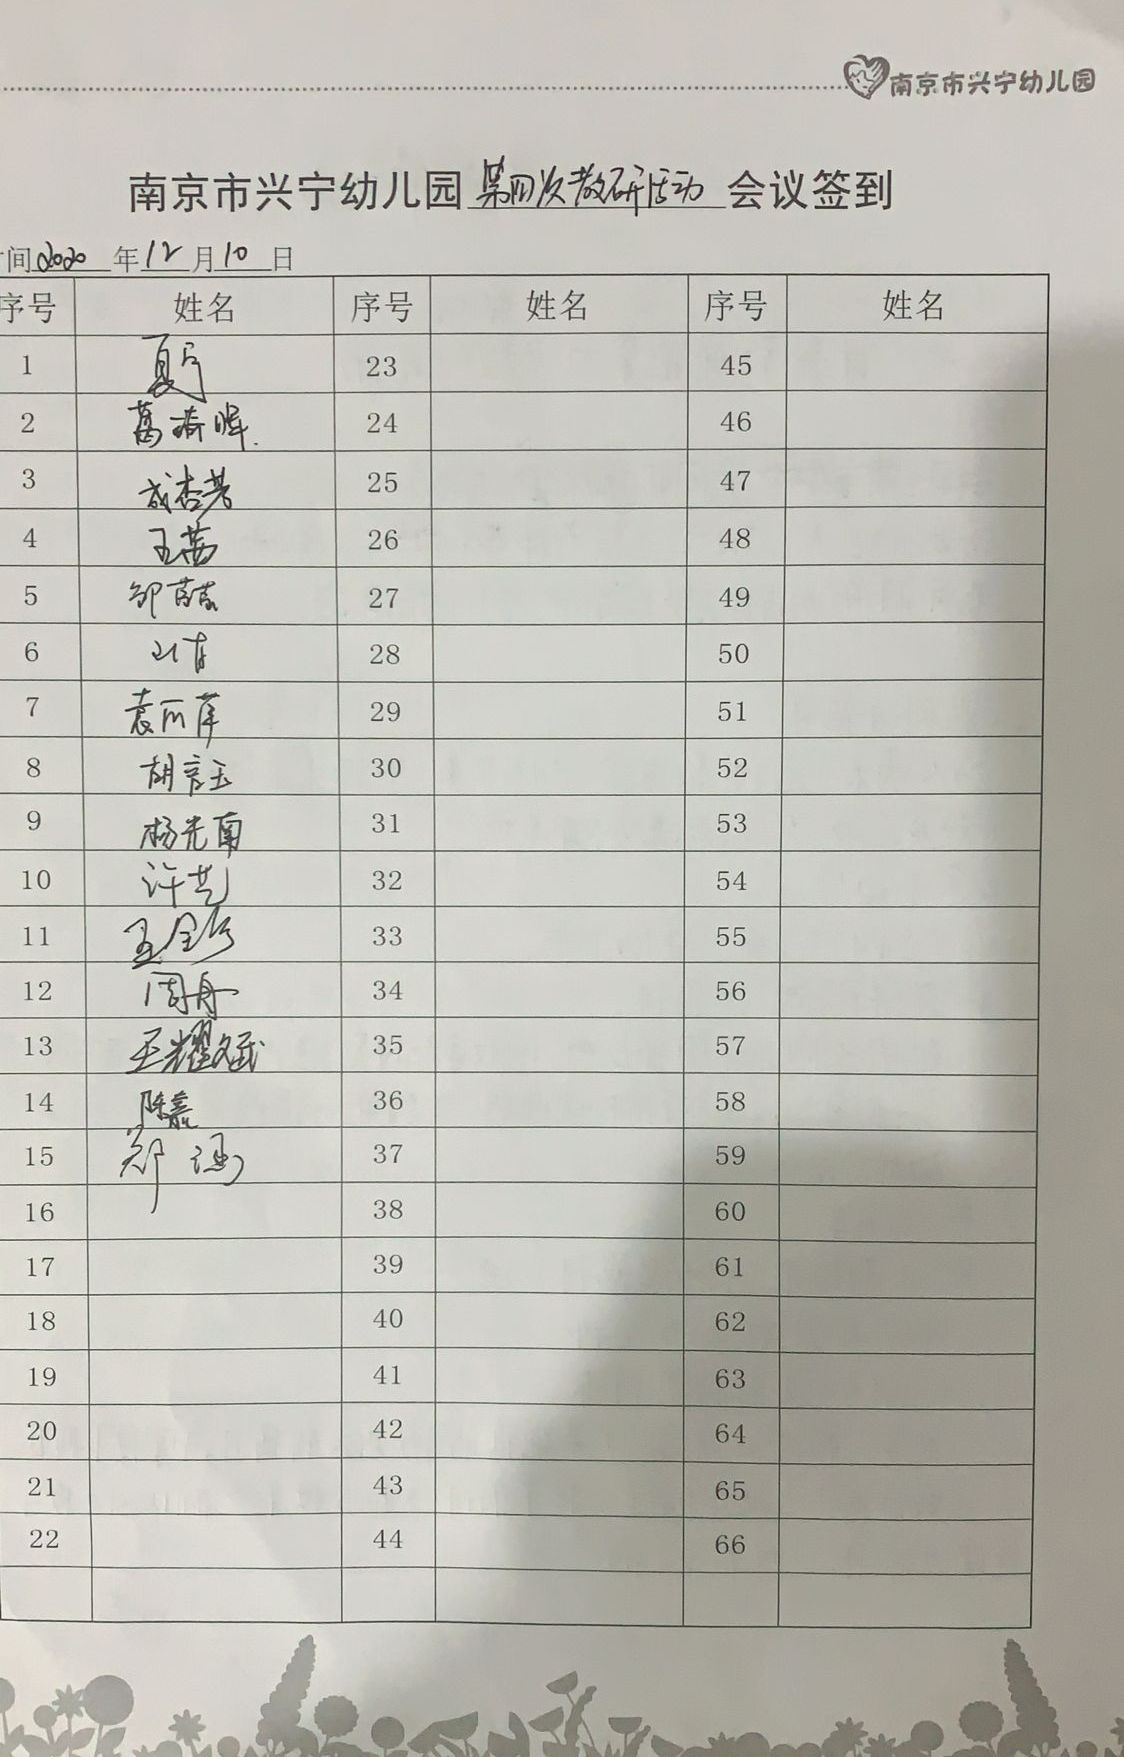 南京市兴宁幼儿园
南京市兴宁幼儿园 第四次教研活动 会议签到
时间2020年12月10日
序号 姓名 序号 姓名 序号 姓名
1 夏 23 45
2 葛 晖. 24 46
3 成杏芳 25 47
4 王茜 26 48
5 邹蓓蓓 27 49
6 28 50
7 袁丽萍 29 51
8 胡言玉 30 52
9 杨光南 31 53
10 许艺 32 54
11 王 33 55
12 周舟 34 56
13 王耀斌 35 57
14 陈嘉 36 58
15 郑涵 37 59
16 38 60
17 39 61
18 40 62
19 41 63
20 42 64
21 43 65
22 44 66